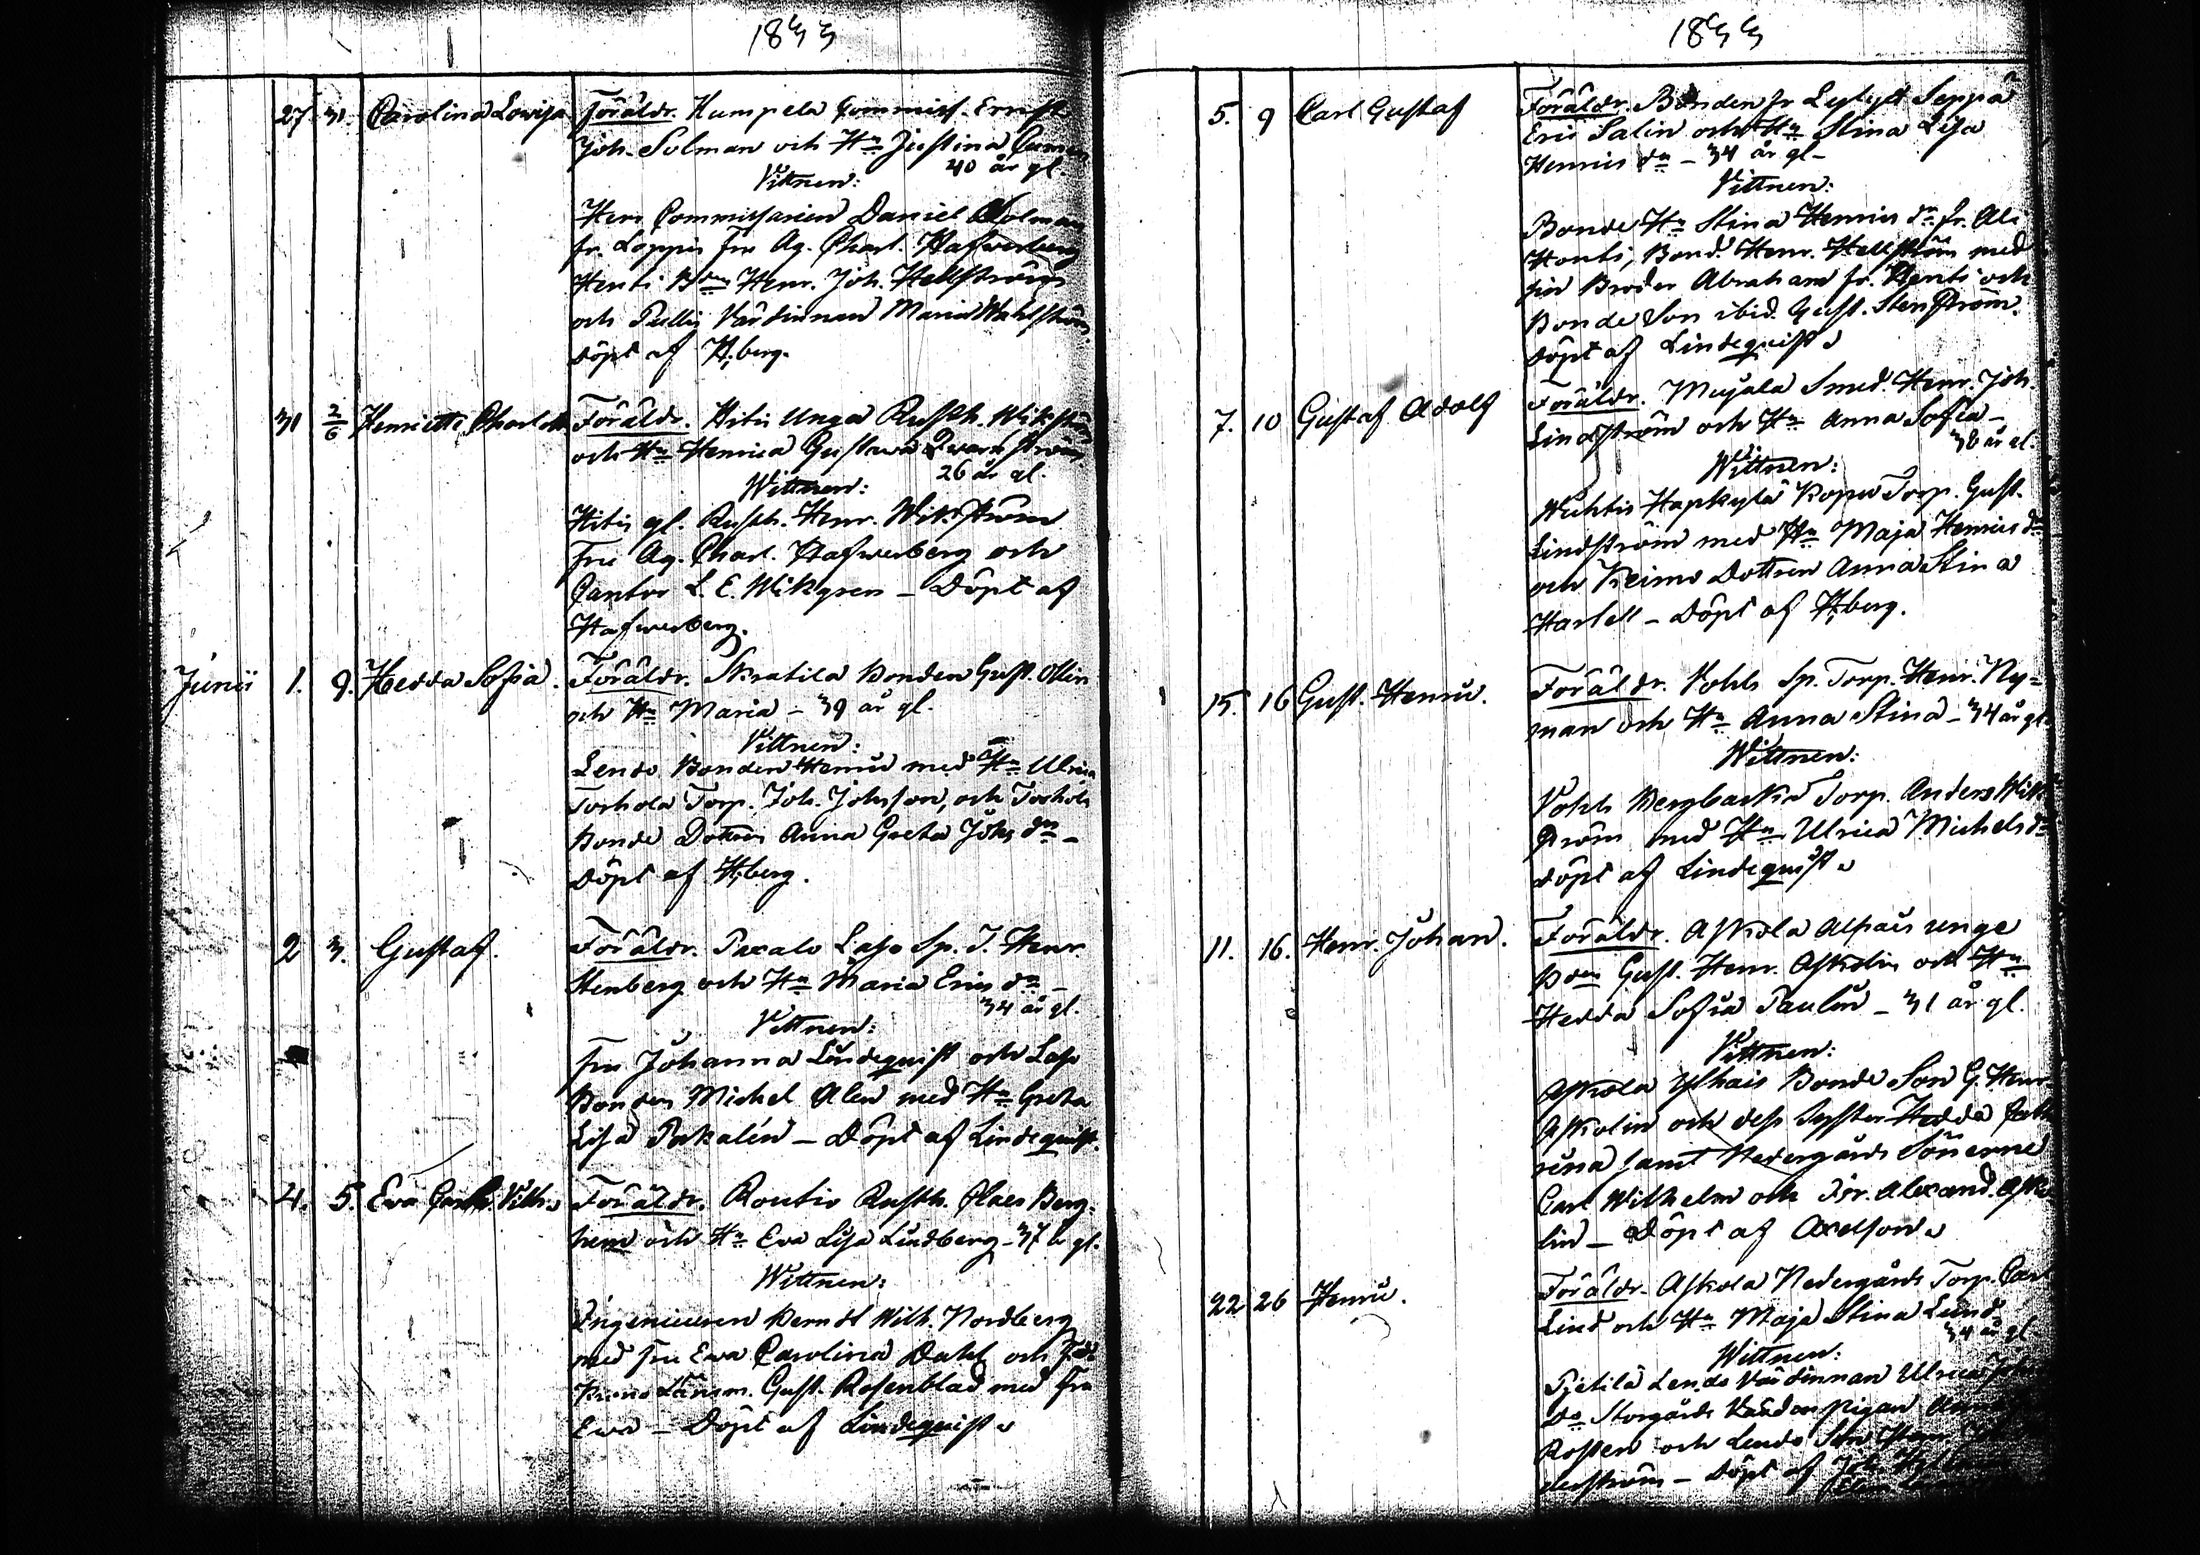 1833
27. 31. Carolina Lowisa Föräldr. Kumpela Commiss. Ernst
Joh. Solman och Hu Justina
40 år gl.
Vittnen:
Herr Commissarien Daniel Solman
fr. Loppis Fru Ag. Charl. Hafverberg
Henti Bden Henr. Joh. Hellström
och Pullis Värdinnan Maria Wahlström
Döpt af H;berg.
31 2/6 Henrietta Charlotta Föräldr. Hitis Unga Rusth. Wikström
och Hu Henrica Gustava Qvarnström
26 år gl.
Wittnen:
Hitis gl. Rusth. Henr. Wikström
Fru Ag. Charl. Hafverberg och
Cantor L. E. Wikgren – Döpt af
Hafverberg.
Junii 1. 9. Hedda Sofia. Föräldr. Skratila Bonden Gust. Ollin
och Hu Maria – 39 år gl.
Vittnen:
Lendo Bonden Henric med Hu Ulrica
Torhola Torp. Joh. Johsson, och Torhola
Bonde Dottren Anna Greta Johs dr –
Döpt af H;berg.
2 3. Gustaf. Föräldr. Paxalo Laso Sp. T. Henr.
Stenberg och Hu Maria Erics dr –
34 år gl.
Vittnen:
Fru Johanna Lindequist och Laso
Bonden Michel Alen med Hu Greta
Lisa Paxalin – Döpt af Lindequist.
4. 5. Eva Carol. Vilh. Föräldr. Routio Rusth. Claes Berg-
hem och Hu Eva Lisa Lindberg – 37 år gl.
Wittnen:
Ingenieuren Berndt Wilh. Nordberg
med Fru Eva Carolina Dahl och
Krono Länsm. Gust. Rosenblad med Fru
Eva – Döpt af Lindequist
1833
5. 9 Carl Gustaf Föräldr. Bonden fr Lylyis Seppä
Eric Salin och Hu Stina Lisa
Henrics dr – 34 år gl –
Vittnen:
Bonde Hu Stina Henrics dr fr. Ali
Honti, Bond. Henr. Hellström med
sin Broder Abraham fr. Henti och
Bonde Son ibid. Gust. Stenström.
Döpt af Lindequist
7. 10 Gustaf Adolf Föräldr. Mujala Smed. Henr. Joh.
Lindström och Hu Anna Sofia –
38 år gl.
Wittnen:
Wichtis Hapkylä Torp. Gust.
Lindström med Hu Maja Henrics dr
och Dottren Anna Stina
Harlell – Döpt af H;berg.
15. 16 Gust. Henric. Föräldr. Vohls Sp. Torp. Henr. Ny=
man och Hu Anna Stina – 34 år gl.
Wittnen:
Vohls Bergbacka Torp. Anders Wik-
ström med Hu Ulrica Michels dr
Döpt af Lindequist
11. 16. Henr. Johan. Föräldr. Askola Alhais unge
Bden Gust. Henr. Askolin och Hu
Hedda Sofia Paulin – 31 år gl.
Vittnen:
Askola Ylhais Bonde Son G. Henr.
Askolin och dess Syster Hedda Catha
rina samt Nedergårds Sönerne
Carl Wilhelm och Alexand. Asko
lin – Döpt af Axelson
22 26 Henric. Föräldr. Askola Nedergårds Torp. Carl
Lind och Hu Maja Stina Lund
34 år gl.
Wittnen:
Pietilä Lendo Värdinnan Ulrica
Do Storgårds Pigan Anna
Rosten och Lendo Son
– Döpt af